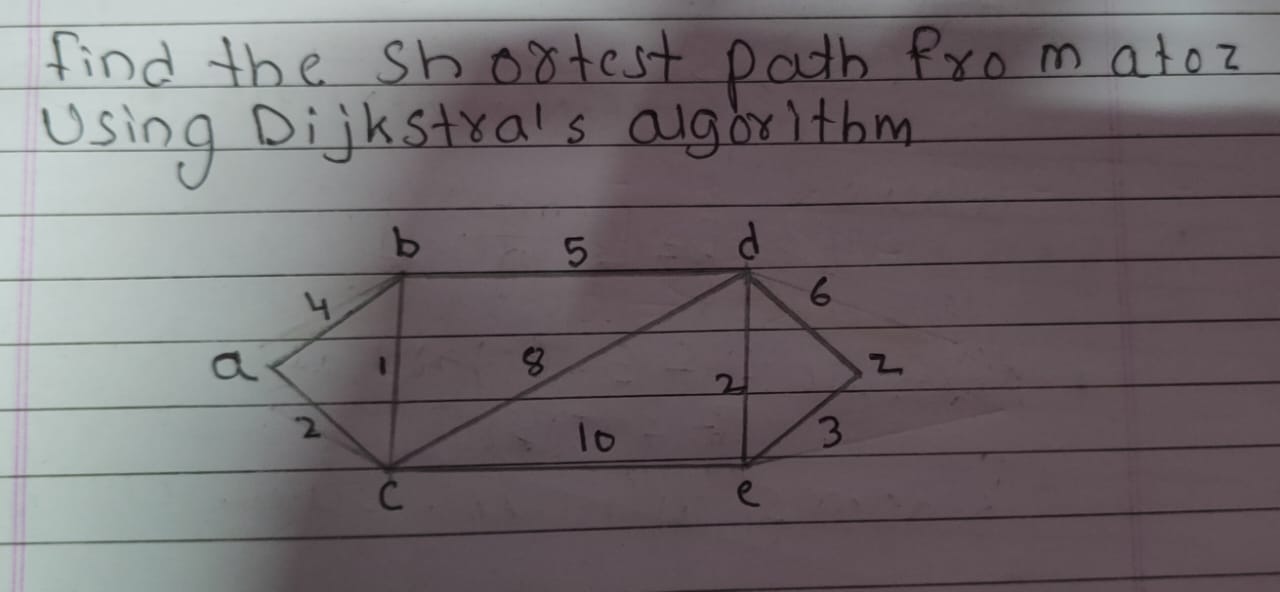 find the shortest path from a to z
Using Dijkstra's algorithm
b 5 d
4 6
a 1 8 2 z
2 10 3
c e